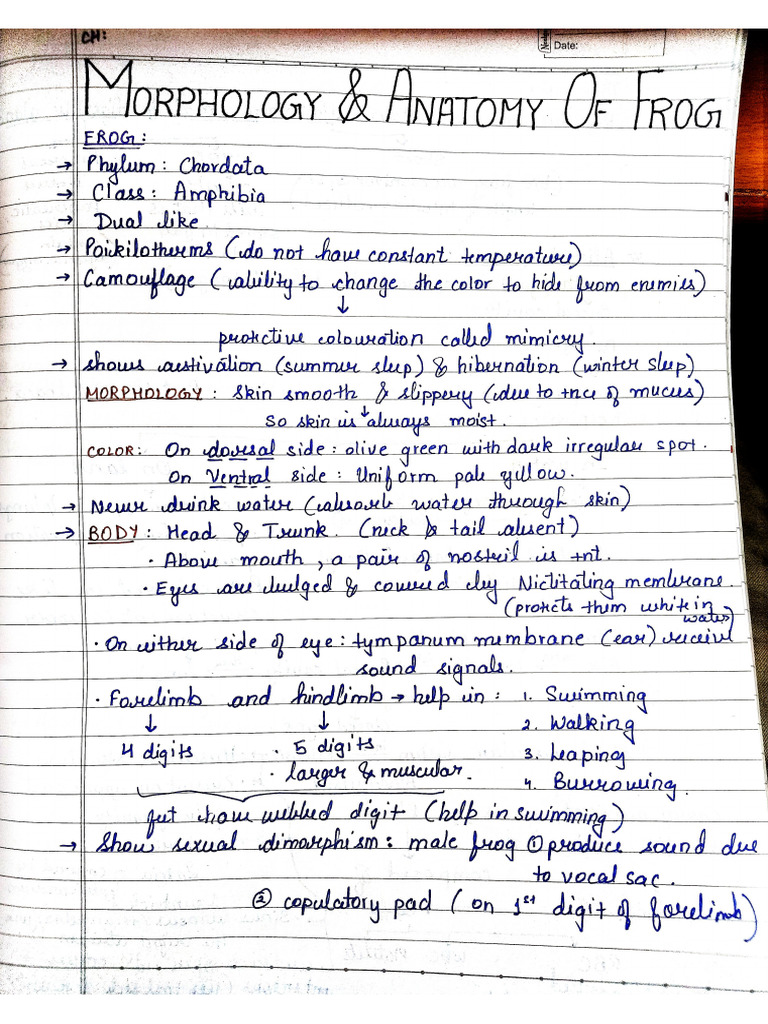 CH:
Date:
MORPHOLOGY & ANATOMY OF FROG
FROG:
→ Phylum: Chordata
→ Class: Amphibia
→ Dual like.
→ Poikilotherms (do not have constant temperature)
→ Camouflage (ability to change the color to hide from enemies)
↓
protective colouration called mimicry.
→ shows aestivation (summer sleep) & hibernation (winter sleep)
MORPHOLOGY: Skin smooth & slippery (due to +nce of mucus)
↓
So skin is always moist.
COLOR: On dorsal side: olive green with dark irregular spot.
On Ventral side: Uniform pale yellow.
→ Never drink water (absorb water through skin)
→ BODY: Head & Trunk. (neck & tail absent)
• Above mouth, a pair of nostril is +nt.
• Eyes are buldged & covered by Nictitating membrane.
(protects them while in water)
• On either side of eye: tympanum membrane (ear) receive
sound signals.
• Forelimb and hindlimb → help in: 1. Swimming
↓ ↓ 2. Walking
4 digits • 5 digits 3. Leaping
• larger & muscular. 4. Burrowing.
feet have webbed digit (help in swimming)
→ Show sexual dimorphism: male frog ① produce sound due
to vocal sac.
② copulatory pad (on 1st digit of forelimb)